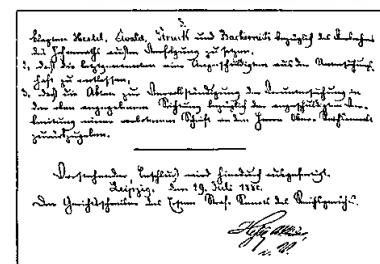 3.
klagten Heckel, Ewald, Struck und Backerweitz bezüglich des Verbrechens
des Hochverraths außer Verfolgung zu setzen,
2, daß die letztgenannten vier Angeschuldigten aus der Untersuchungs
haft zu entlassen,
3, daß die Akten zur Vervollständigung der Voruntersuchung in
der oben angegebenen Richtung bezüglich der angeschuldigten Ver-
breitung einer verbotenen Schrift an den Herrn Ober-Reichsanwalt
zurückzugeben.
Vorstehender Beschluß wird hierdurch ausgefertigt.
Leipzig, den 19. Juli 188
Der Gerichtsschreiber des Ersten Straf-Senats des Reichsgerichts.
i. V.